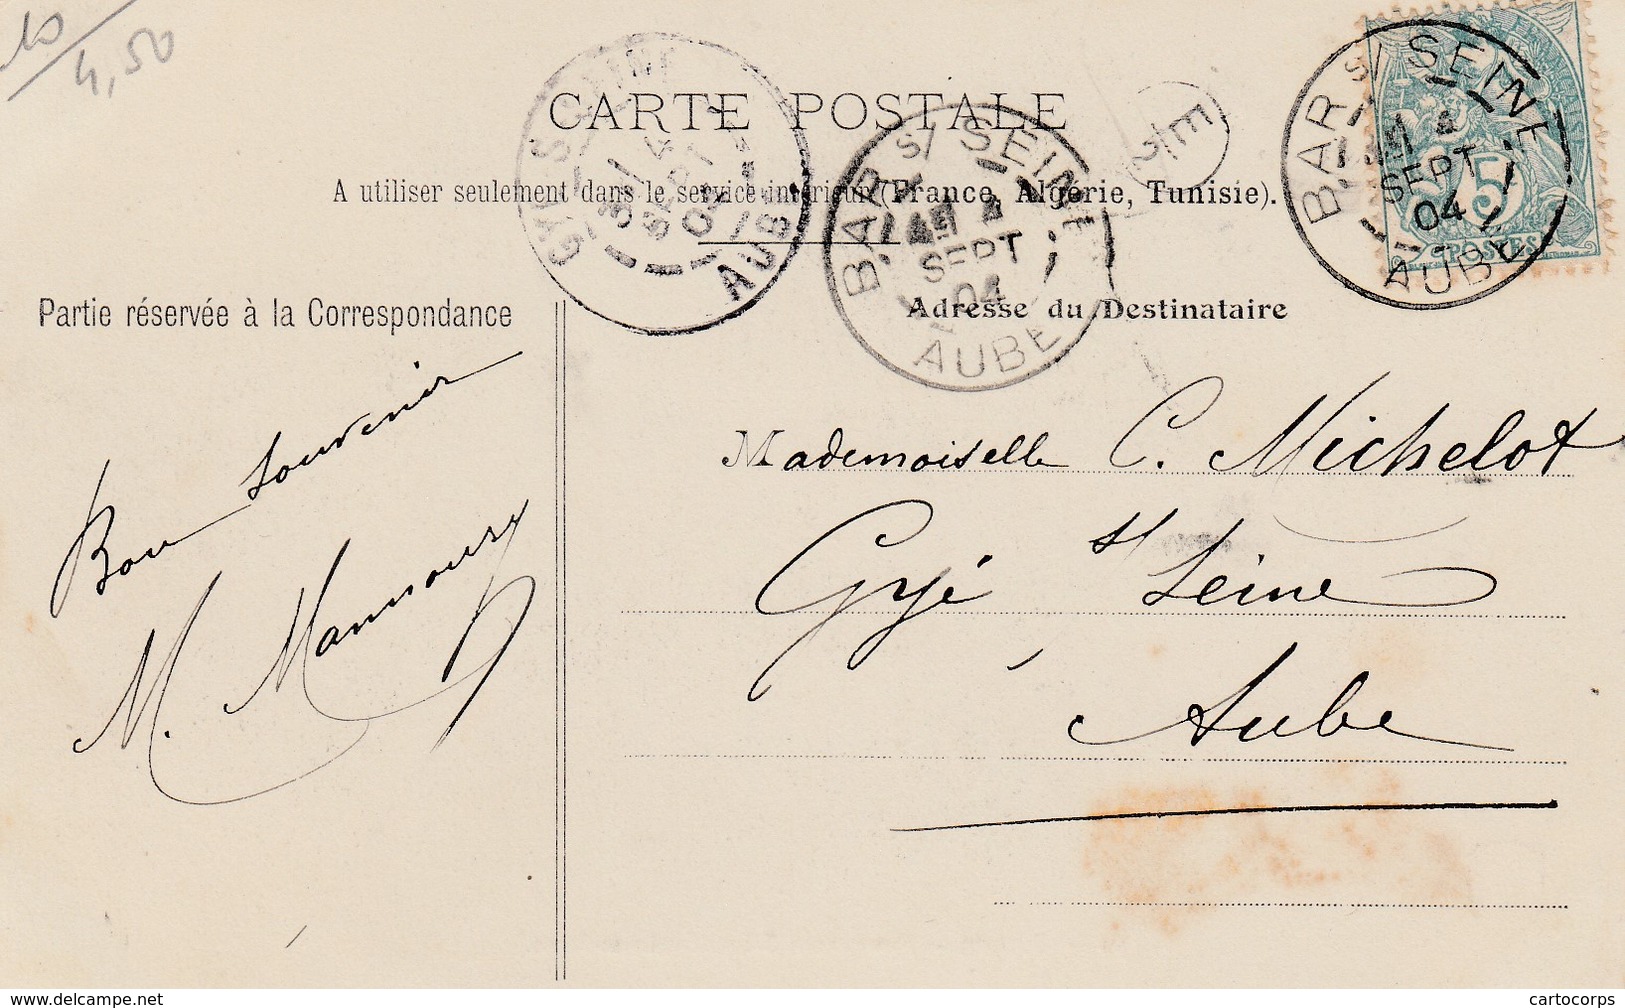 10/
4,50
CARTE POSTALE
A utiliser seulement dans le service intérieur (France, Algérie, Tunisie).
BAR S/ SEINE
4
SEPT
04
AUBE
BAR S/ SEINE
4
SEPT
04
AUBE
GYÉ S/ SEINE
4
SEPT
04
AUBE
5
POSTES
E
Partie réservée à la Correspondance
Adresse du Destinataire
Bon souvenir
M.
Mademoiselle C. Michelot
Gyé s/ Seine
Aube
www.delcampe.net
cartocorps